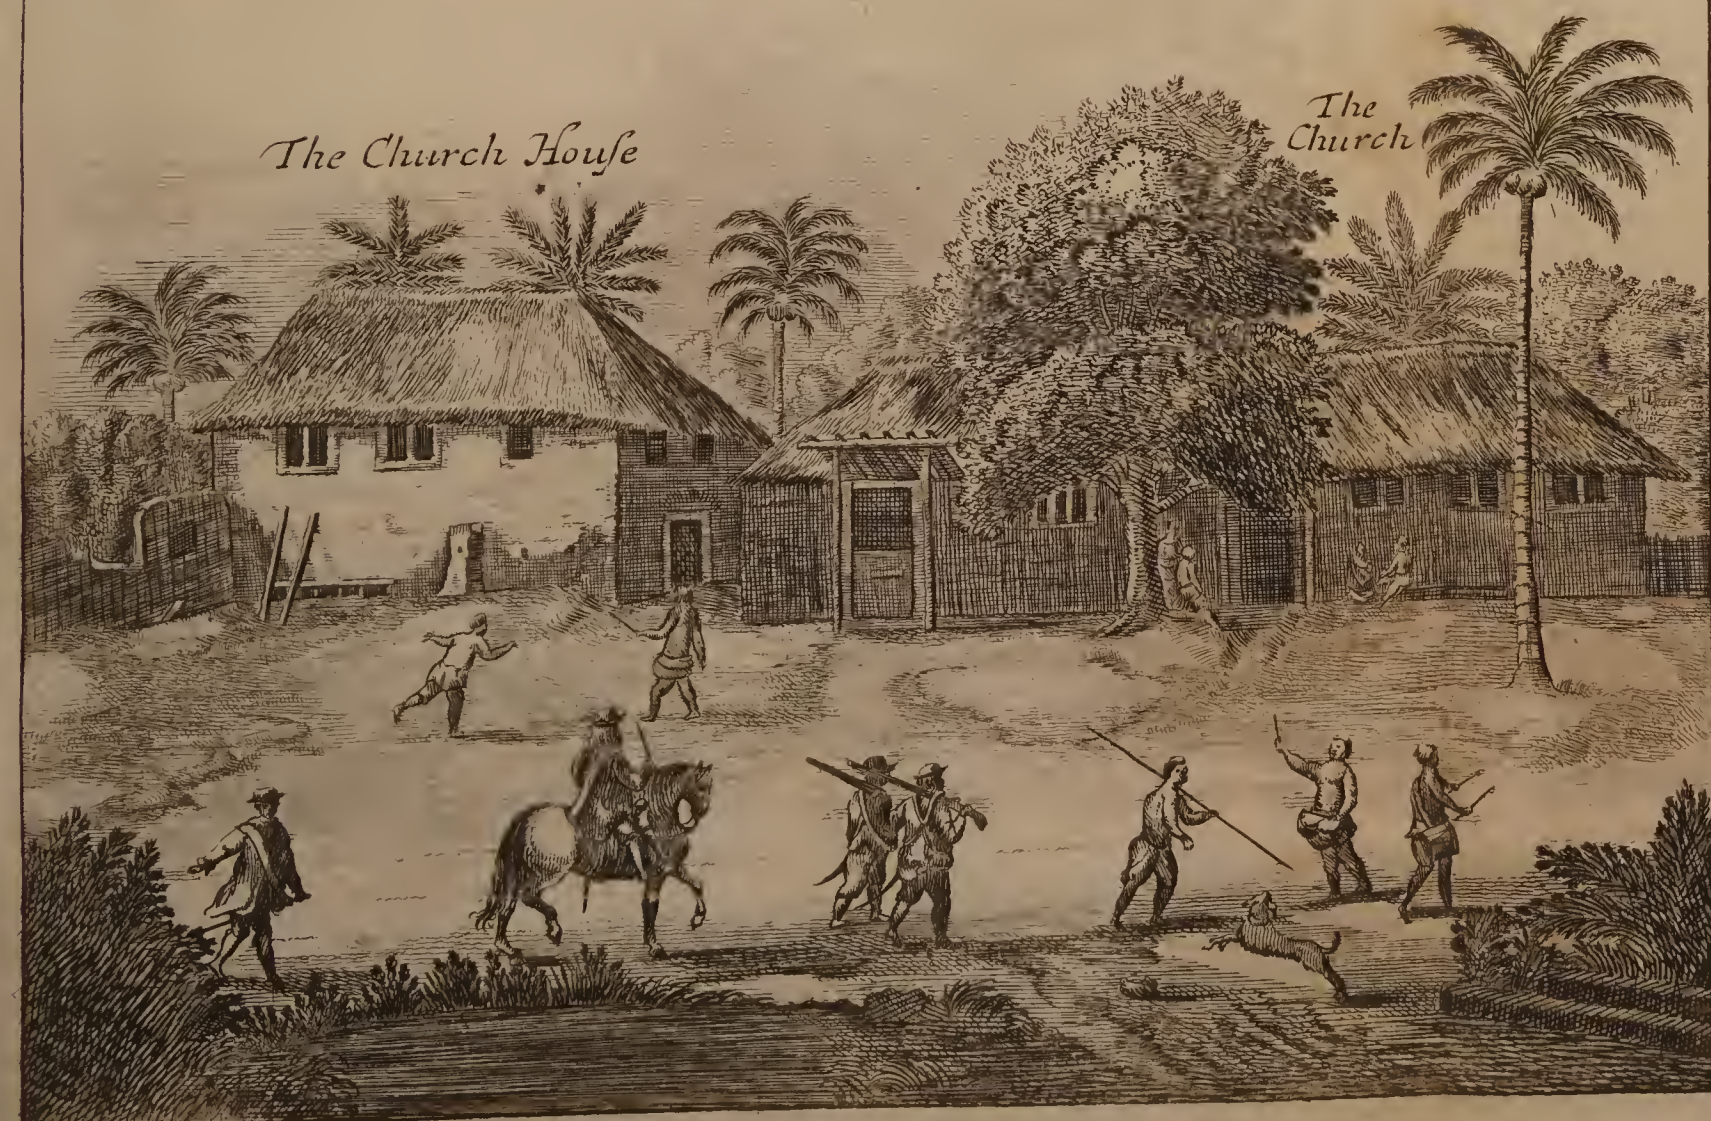 The Church Houſe
The
Church